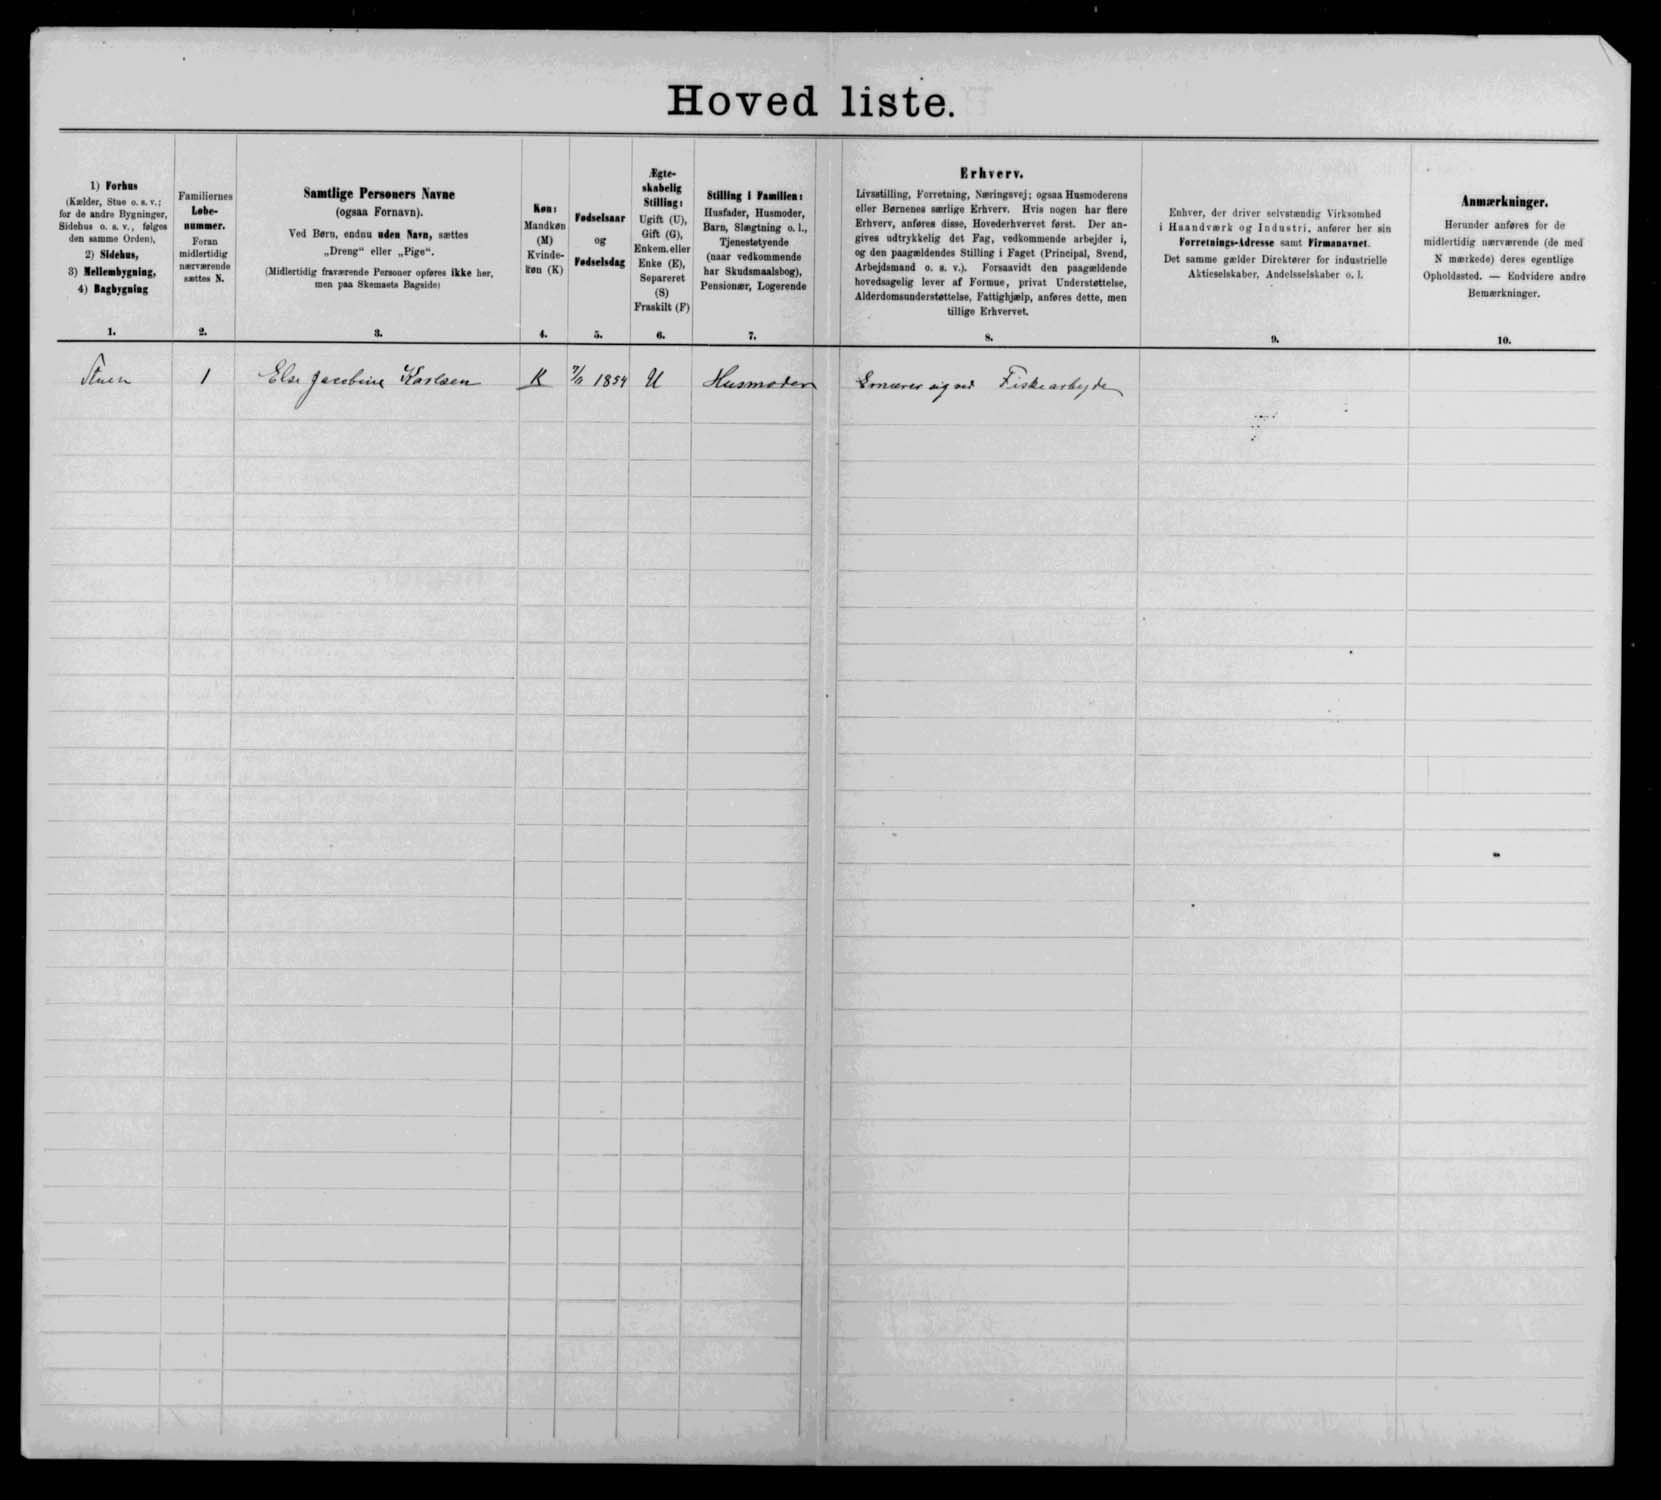 Hoved liste.
1) Forhus
(Kælder, Stue o. s. v.;
for de andre Bygninger,
Sidehus o. s. v., følges
den samme Orden),
2) Sidehus,
3) Mellembygning,
4) Bagbygning
1.
Familiernes
Løbe-
nummer.
Foran
midlertidig
nærværende
sættes N.
2.
Samtlige Personers Navne
(ogsaa Fornavn).
Ved Børn, endnu uden Navn, sættes
„Dreng“ eller „Pige“.
(Midlertidig fraværende Personer opføres ikke her,
men paa Skemaets Bagside)
3.
Køn:
Mandkøn
(M)
Kvinde-
køn (K)
4.
Fødselsaar
og
Fødselsdag
5.
Ægte-
skabelig
Stilling:
Ugift (U),
Gift (G),
Enkem. eller
Enke (E),
Separeret
(S)
Fraskilt (F)
6.
Stilling i Familien:
Husfader, Husmoder,
Barn, Slægtning o. l.,
Tjenestetyende
(naar vedkommende
har Skudsmaalsbog),
Pensionær, Logerende
7.
Erhverv.
Livsstilling, Forretning, Næringsvej; ogsaa Husmoderens
eller Børnenes særlige Erhverv. Hvis nogen har flere
Erhverv, anføres disse, Hovederhvervet først. Der an-
gives udtrykkelig det Fag, vedkommende arbejder i,
og den paagældendes Stilling i Faget (Principal, Svend,
Arbejdsmand o. s. v.). Forsaavidt den paagældende
hovedsagelig lever af Formue, privat Understøttelse,
Alderdomsunderstøttelse, Fattighjælp, anføres dette, men
tillige Erhvervet.
8.
Enhver, der driver selvstændig Virksomhed
i Haandværk og Industri, anfører her sin
Forretnings-Adresse samt Firmanavnet.
Det samme gælder Direktører for industrielle
Aktieselskaber, Andelsselskaber o. l.
9.
Anmærkninger.
Herunder anføres for de
midlertidig nærværende (de med
N mærkede) deres egentlige
Opholdssted. — Endvidere andre
Bemærkninger.
10.
Stuen 1 Else Jacobine Karlsen K 1854 U Husmoder Ernærer sig ved Fiskearbejde